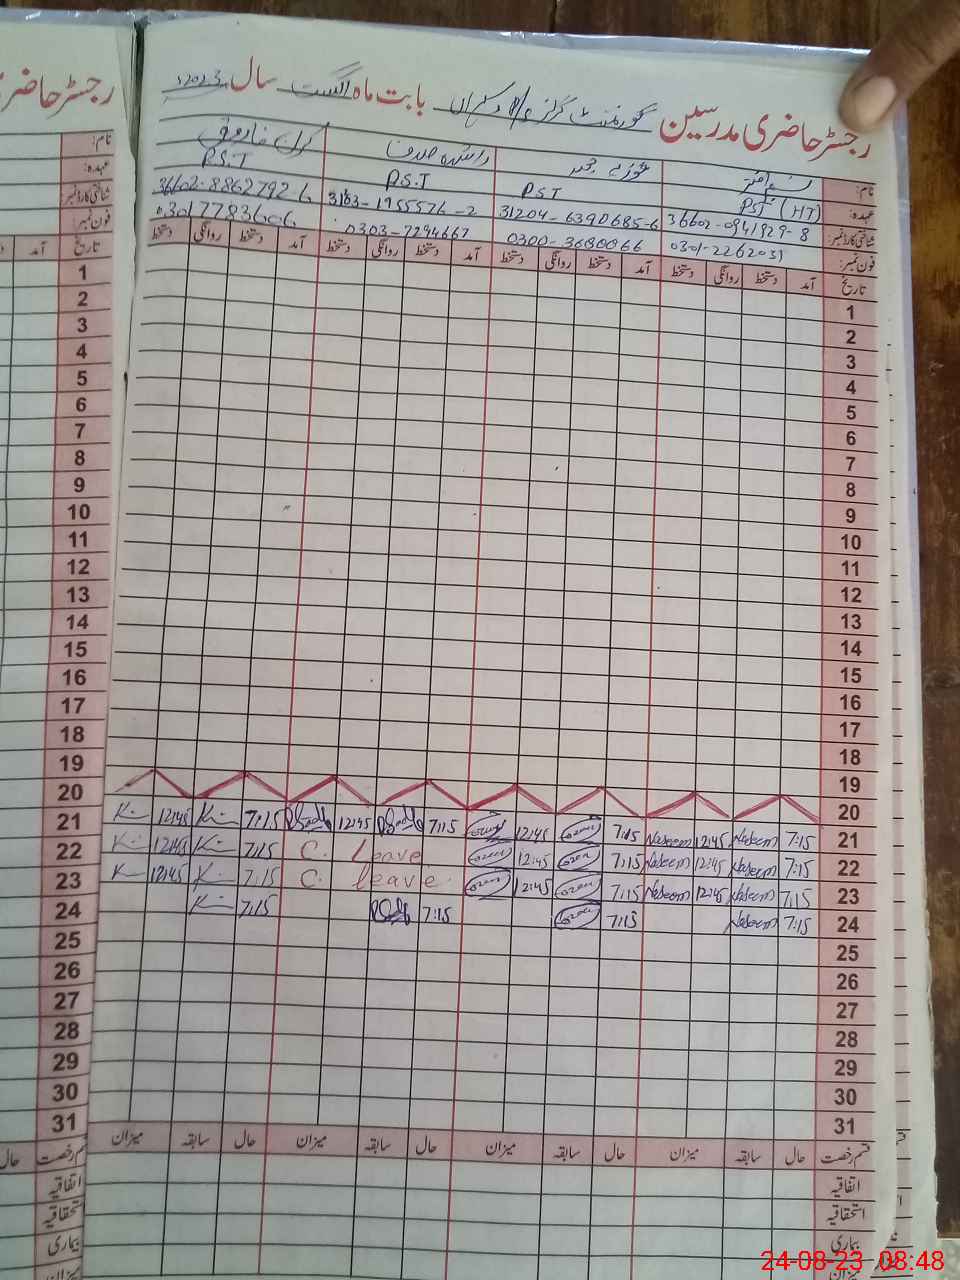 رجسٹر حاضری مدرسین گورنمنٹ گرلز بابت ماہ اگست سال 2023
نام:
عہدہ: PST (HT) PST P.S.T P.S.T
شناختی کارڈ نمبر: 36602-0941929-8 31204-6390685-6 3183-1955576-2 36602-8862792-6
فون نمبر: 0301-2262031 0300-3680866 0303-7294667 03017783606
تاریخ آمد دستخط روانگی دستخط آمد دستخط روانگی دستخط آمد دستخط روانگی دستخط آمد دستخط روانگی دستخط
1
2
3
4
5
6
7
8
9
10
11
12
13
14
15
16
17
18
19
20
21 7:15 Naseem 12:45 Naseem 7:15 12:45 7:15 12:45 7:15 K 12:45 K
22 7:15 Naseem 12:45 Naseem 7:15 12:45 C. Leave 7:15 K 12:45 K
23 7:15 Naseem 12:45 Naseem 7:15 12:45 C. leave 7:15 K 12:45 K
24 7:15 Naseem 7:15 7:15 7:15 K
25
26
27
28
29
30
31
قسم رخصت حال سابقہ میزان حال سابقہ میزان حال سابقہ میزان حال سابقہ میزان
اتفاقیہ
استحقاقیہ
بیماری
میزان
رجسٹر حاضری
نام:
عہدہ:
شناختی کارڈ نمبر:
فون نمبر:
تاریخ آمد
1
2
3
4
5
6
7
8
9
10
11
12
13
14
15
16
17
18
19
20
21
22
23
24
25
26
27
28
29
30
31
قسم رخصت حال
اتفاقیہ
استحقاقیہ
بیماری
میزان
24-08-23 08:48